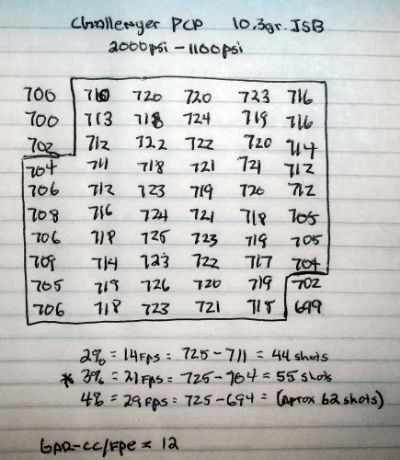 Challenger PCP 10.3gr. JSB
2000psi - 1100psi
700 710 720 720 723 716
700 713 718 724 719 716
702 712 722 722 720 714
704 711 718 721 721 712
706 712 723 719 720 712
708 716 724 721 718 705
706 718 725 723 719 705
709 714 723 722 717 704
705 719 726 720 719 702
706 718 723 721 715 699
2% = 14FPS = 725-711 = 44 shots
* 3% = 21FPS = 725-704 = 55 shots
4% = 29FPS = 725-694 = (Aprox 62 shots)
GAR-CC/FPE = 12